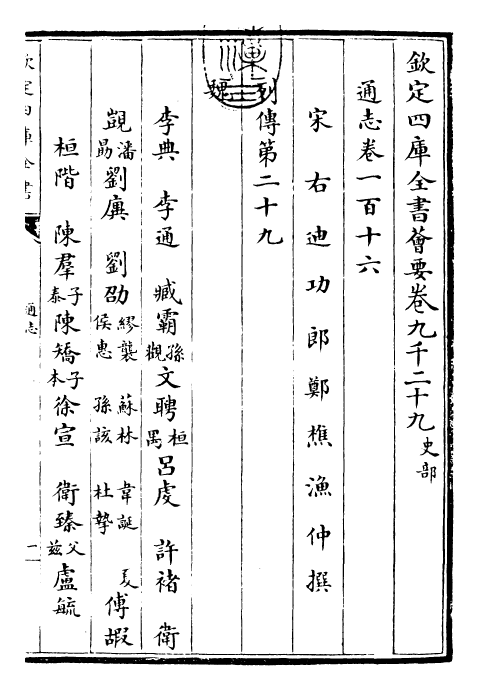 欽定四庫全書薈要卷九千二十九史部
通志卷一百十六
宋右迪功郎鄭樵漁仲撰
列傳第二十九
魏
李典 李通 臧霸孫觀文聘桓禺呂虔 許褚 衛
覬潘勗劉廙 劉劭繆襲 蘇林 韋誕 夏侯惠 孫該 杜摯 傅嘏
桓階 陳羣子泰陳矯子本徐宣 衛臻父茲盧毓
欽定四庫全書
通志
一